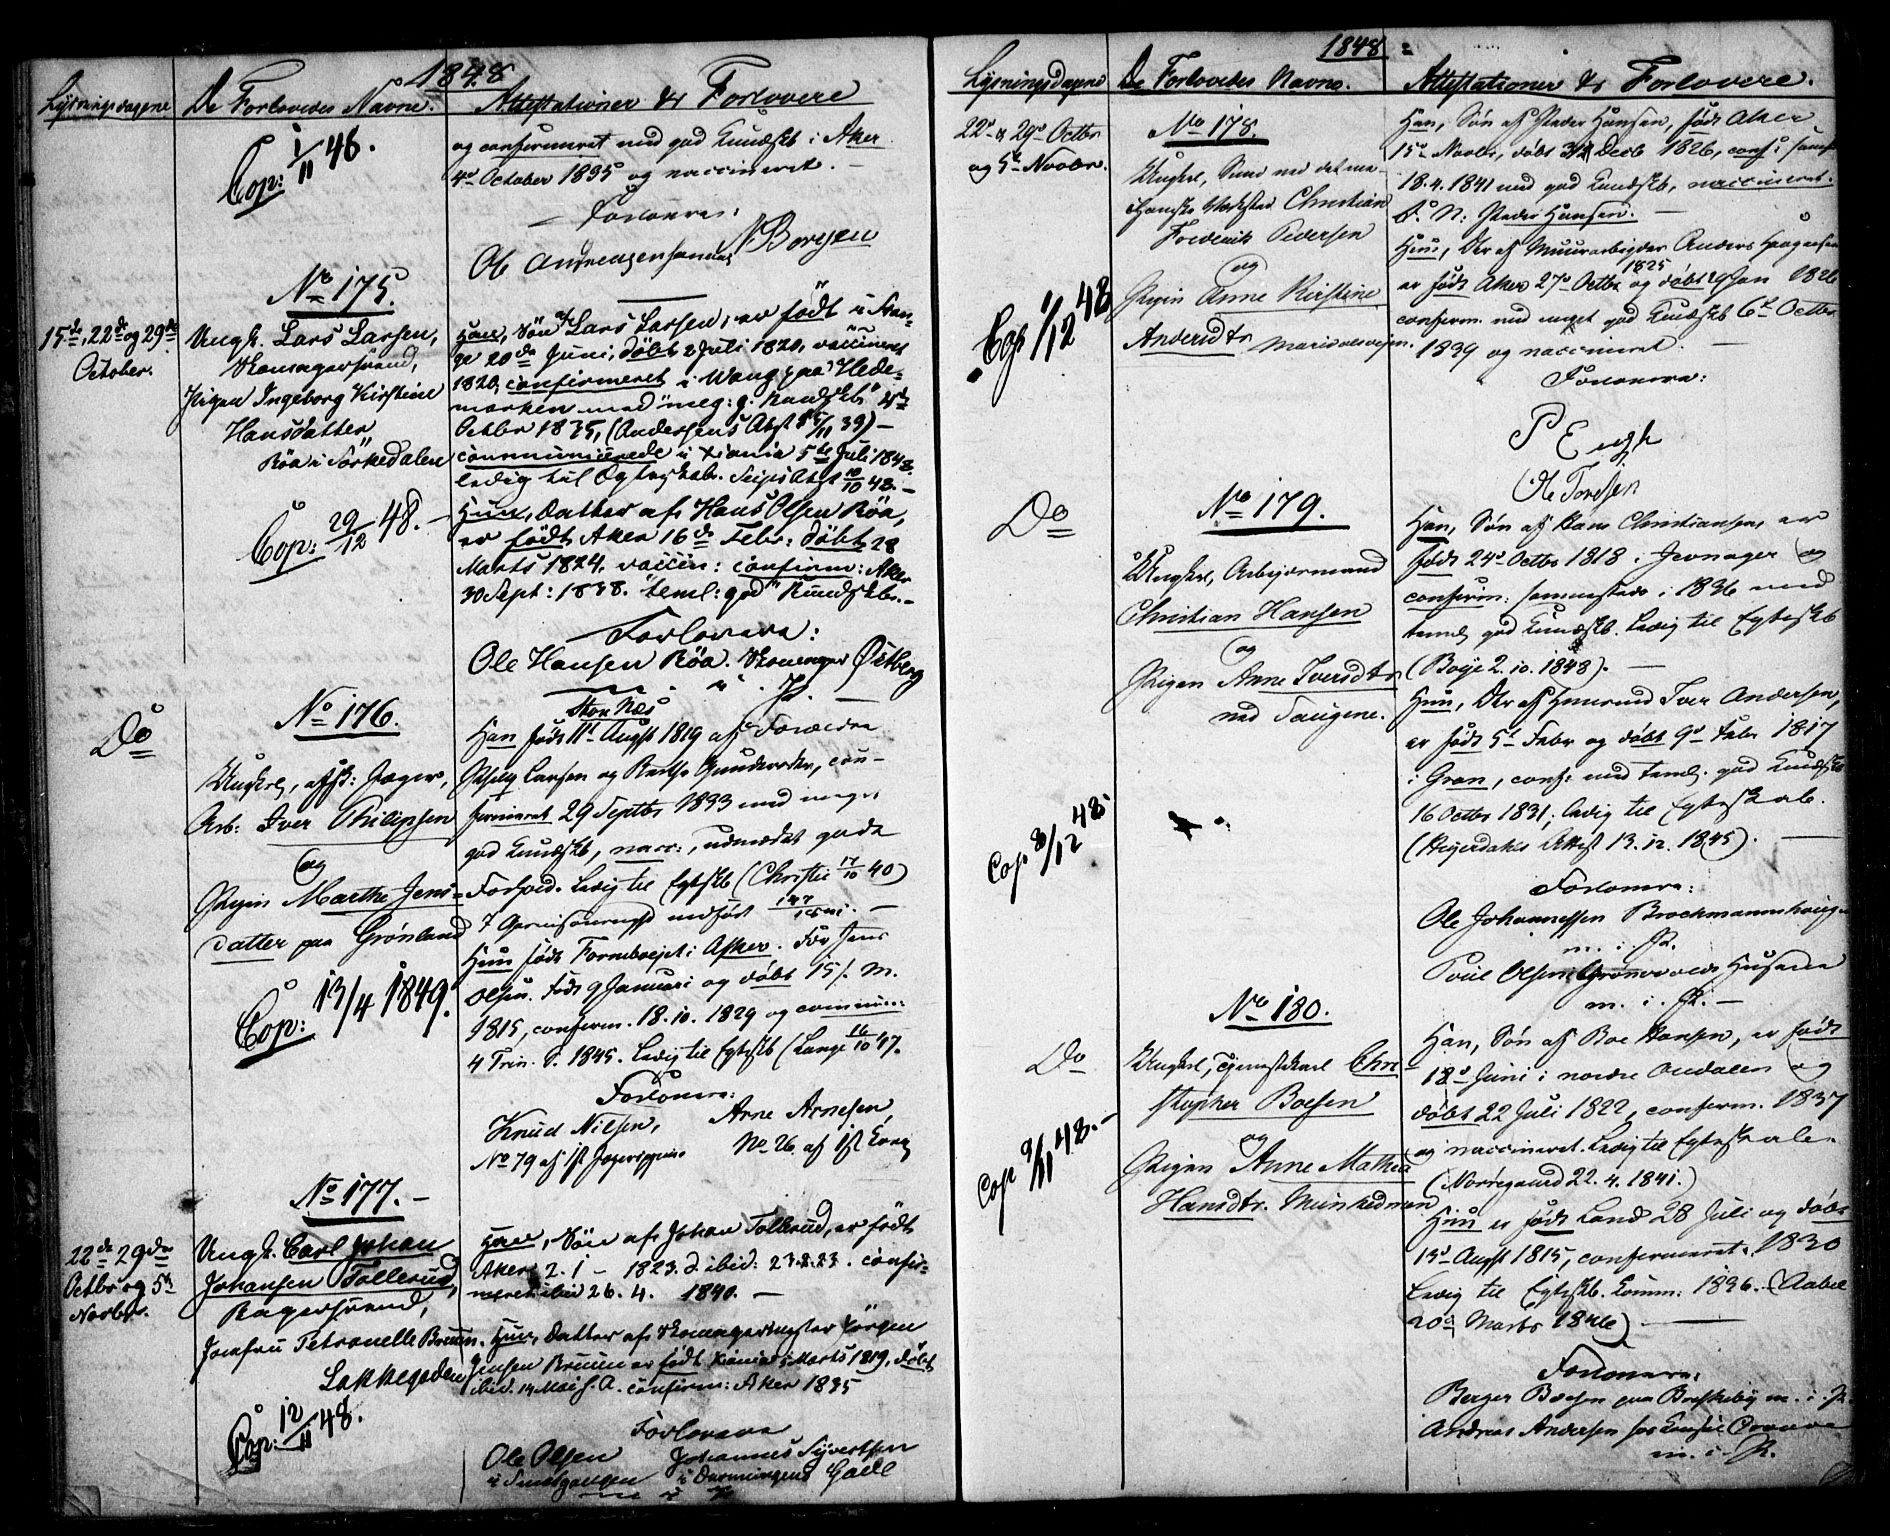 1848
Lysningsdagene De Forlovedes Navne. Attestationer & Forlovere
Cop: 1/11 48.
og confirmeret med god Kundsk i Aker
4de October 1835 og vaccineret.
Forlovere:
Ole Andreasen N Borgen
No 175.
15de, 22de og 29de
October.
Ungk. Lars Larsen,
Skomagersvend,
Pigen Ingeborg Kirstine
Hansdatter
Röa i Sörkedalen
Cop: 29/12 48.
Han, Sön af Lars Larsen, er født i Stan-
ge 20de Juni, döbt 2 Juli 1820, vaccineret
1820, confirmeret i Wang paa Hede-
marken med "meg: g. Kundskb" 4de
Octbr 1835, (Andersens Atst 15/11 39) -
communicerede i Xiania 5te Juli 1848
ledig til Egteskab. Seips Atst 10/10 48. -
Hun, Datter af Hans Olsen Röa,
er født Aker 16de Febr: döbt 28
Marts 1824, vaccin: confirm: Aker
30 Sept: 1838. "teml: god" Kundskb. -
Forlovere:
Ole Hansen Röa. Skomager Østberg
No 176.
Do
Ungkrl, afsk: Jæger,
Arb: Iver Philipsen
og
Pigen Marthe Jens-
datter paa Grönland
Cop: 13/4 1849.
Stor Næs
Han født 11te Augst 1819 af Forældre
Philip Larsen og Berthe Gundersdtr, con-
firmeret 29 Septbr 1833 med meget
god Kundskb, vacc:, udmærket gode
Forhold. Ledig til Egteskb (Christie 17/10 40)
Hun født i Asker. For Jens
Olsen. Født 9 Januari og döbt 15/1. M.
1815, confirm. 18.10.1829 og commun:
4 Trin. S. 1845. Ledig til Egteskb (Lange 16/10 47.
Forlovere:
Knud Nilsen, Arne Arnesen,
No 79 af No 26 af
No 177. -
22de 29de
Octbr og 5te
Novbr.
Ungk. Carl Johan
Johansen Tollerud,
Bagersvend,
Jomfru Petronelle Bruun.
Lakkegaden
Cop: 12/11 48.
Han, Sön af Johan Tollerud, er født
Aker 2. 1 - 1823. d ibid: 23.2.23. confir-
meret ibid 26. 4. 1840. -
Hun, Datter af Skomagermester Jörgen
Jensen Bruun er født Xiania 5 Marts 1819, döbt
ibid. 14 Mai s. A. confirm: Aker 1835
Forlovere
Ole Olsen Johannes Syvertsen
i Smalgangen
1848
Lysningsdagene De Forlovedes Navne. Attestationer & Forlovere.
22de & 29de Octbr
og 5te Novbr.
No 178.
Ungkrl, Smed ved det me-
chaniske Værksted Christian
Frederik Pedersen
og
Pigen Anne Kirstine
Andersdtr
Cop 1/12 48
Han, Søn af Peder Hansen, født Aker
15de Novbr, döbt Decb 1826, conf i samme
18.4.1841 med god Kundskb, vaccineret.
Hun, Dtr af Muurarbejder Anders
er født Aker 27de Octbr 1825 og döbt 29 Jan 1826
confirm. med meget god Kundskb 6te Octbr
1839 og vaccineret. -
Forlovere:
P Engh
Ole Torešen
No 179.
Do
Ungkrl, Arbejdsmand
Christian Hansen
og
Pigen Anne Iversdtr
ved Saugene.
Cop 30/12 48.
Han, Søn af Hans Christiansen, er
født 24de Octbr 1818 i Jevnager og
confirm: sammesteds i 1836 med
teml: god Kundskb. Ledig til Egteskb
(Boye 2.10.1848). -
Hun, Dtr af Huusmand Iver Andersen,
er født 5te Febr og döbt 9de Febr 1817
i Gran, conf: med teml. god Kundskb
16 Octbr 1831; ledig til Egteskab.
(Hejerdahls Attest 13.12.1845). -
Forlovere:
Ole Johannessen
m. i. P.
Poul Olsen
m. i. P. -
No 180.
Do
Ungkrl, Tjenestekarl Chri-
stopher Boesen
og
Pigen Anne Mathea
Hansdtr. Munkedmen
Cop 9/11 48. -
Han, Søn af Boe Hansen, er født
18de Juni i nordre Aurdalen og
döbt 22 Juli 1822, confirm. 1837
og vaccineret. Ledig til Egteskab.
(Norregaard 22.4.1841.)
Hun er født Land 28 Juli og döbt
13de Augst 1815, confirmeret 1830
Ledig til Egteskb. Comm: 1836. (Aabel
20de Marts 1846) -
Forlovere:
Berger Boesen paa m. i. P.
Andreas Andersen hos Consul
m. i. P.